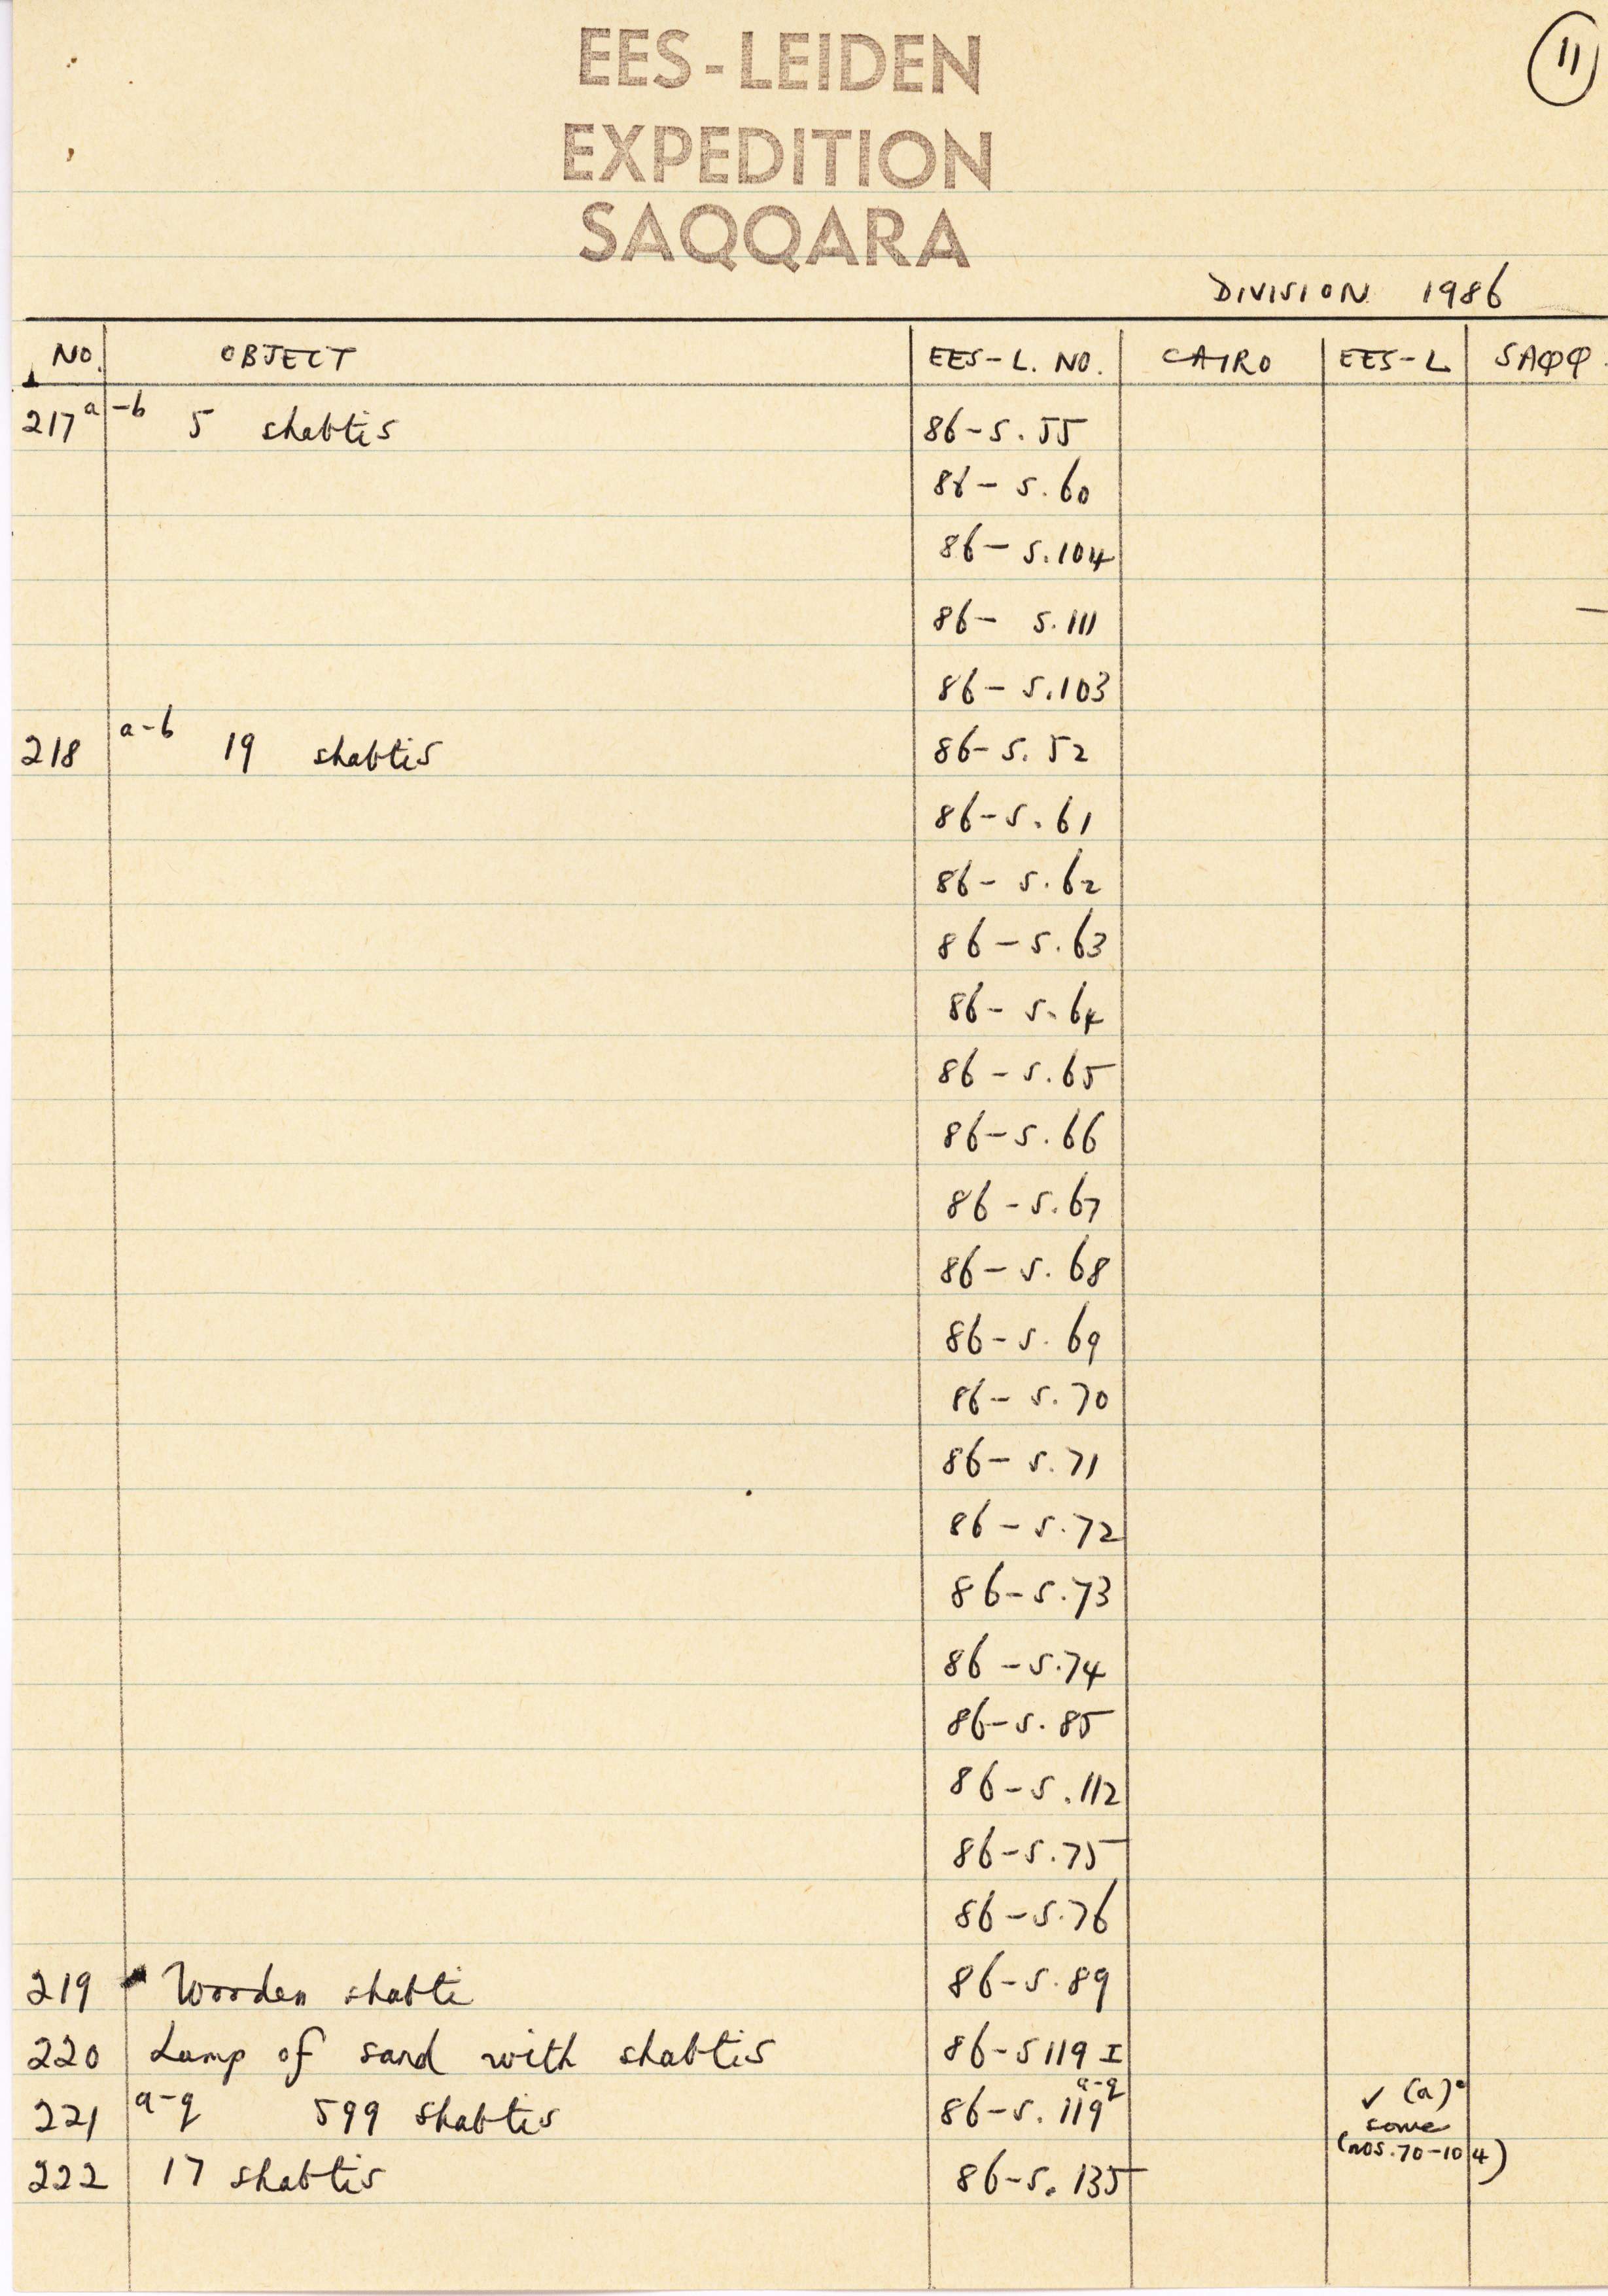 11
EES-LEIDEN
EXPEDITION
SAQQARA
DIVISION 1986
NO. OBJECT EES-L. NO. CAIRO EES-L SAQQ.
217 a-b 5 shabtis 86-S.55
86-S.60
86-S.104
86-S.111
86-S.103
218 a-b 19 shabtis 86-S.52
86-S.61
86-S.62
86-S.63
86-S.64
86-S.65
86-S.66
86-S.67
86-S.68
86-S.69
86-S.70
86-S.71
86-S.72
86-S.73
86-S.74
86-S.85
86-S.112
86-S.75
86-S.76
219 Wooden shabti 86-S.89
220 Lump of sand with shabtis 86-S119 I
221 a-q 599 shabtis 86-S.119 a-q ✓ (a)
some
(nos. 70-104)
222 17 shabtis 86-S.135